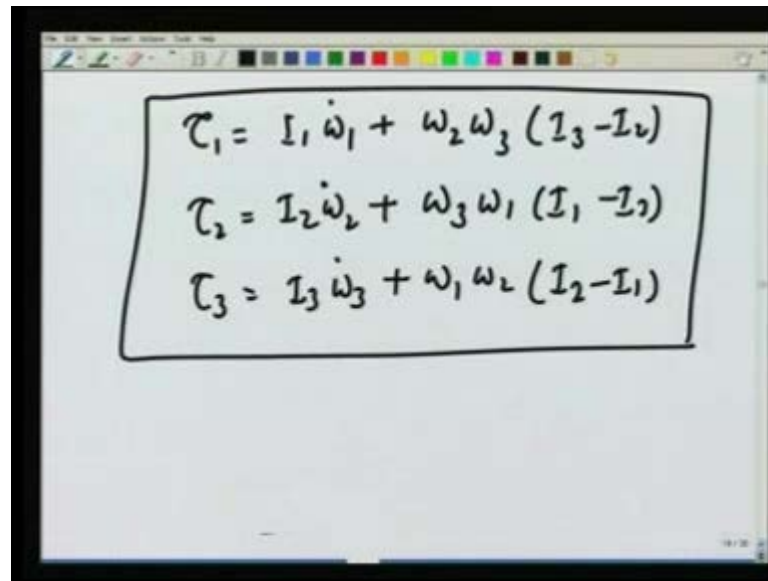 τ₁ = I₁ ω̇₁ + ω₂ ω₃ (I₃ - I₂)
τ₂ = I₂ ω̇₂ + ω₃ ω₁ (I₁ - I₃)
τ₃ = I₃ ω̇₃ + ω₁ ω₂ (I₂ - I₁)